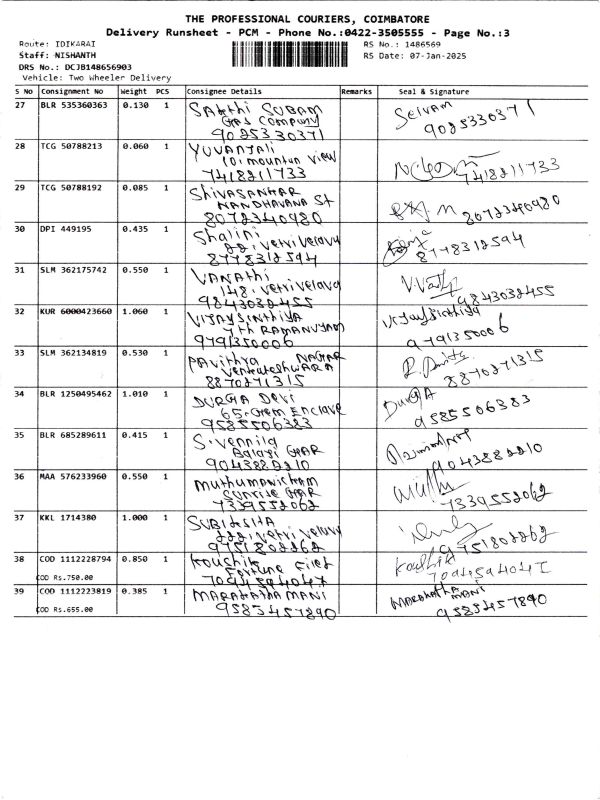 THE PROFESSIONAL COURIERS, COIMBATORE
Delivery Runsheet - PCM - Phone No.:0422-3505555 - Page No.:3
Route: IDIKARAI
RS No.: 1486569
Staff: NISHANTH
RS Date: 07-Jan-2025
DRS No.: DCJB148656903
Vehicle: Two Wheeler Delivery
S No Consignment No Weight PCS Consignee Details Remarks Seal & Signature
27 BLR 535360363 0.130 1 Sakthi SUBAM Selvam
GAS COMPANY
9025330371 9025330371
28 TCG 50788213 0.060 1 YUVANJALI
10, mountun view
7418211733 7418211733
29 TCG 50788192 0.085 1 Shivasankar
NANDHAVANA St
8072340980 8072340980
30 DPI 449195 0.435 1 Shalini
22, Vetrivelavu
8778312594 8778312594
31 SLM 362175742 0.550 1 VANAthi
148, vetrivelavu
9843032455 9843032455
32 KUR 6000423660 1.060 1 VIJAYSINTHIYA Vijaysinthiya
7th RAMANUJAM
9791350006 9791350006
33 SLM 362134819 0.530 1 PAVithra NAGAR
Venkateshwara
8870271315 8870271315
34 BLR 1250495462 1.010 1 DURGA Devi DurgA
65, Gem Enclave
9585506383 9585506383
35 BLR 685289611 0.415 1 S. Vennila
Balaji GNAR
9043882210 9043882210
36 MAA 576233960 0.550 1 muthumanickam
Sunrise GNAR
7339552062 7339552062
37 KKL 1714380 1.000 1 SUBIKSHA
222, vetri velavu
9751802262 9751802262
38 COD 1112228794 0.850 1 Koushik Koushik
Fortune Cites
COD Rs.750.00 7094594047 7094594047
39 COD 1112223819 0.385 1 MARAKATHA MANI MARAKATHA MANI
COD Rs.655.00 9585457890 9585457890